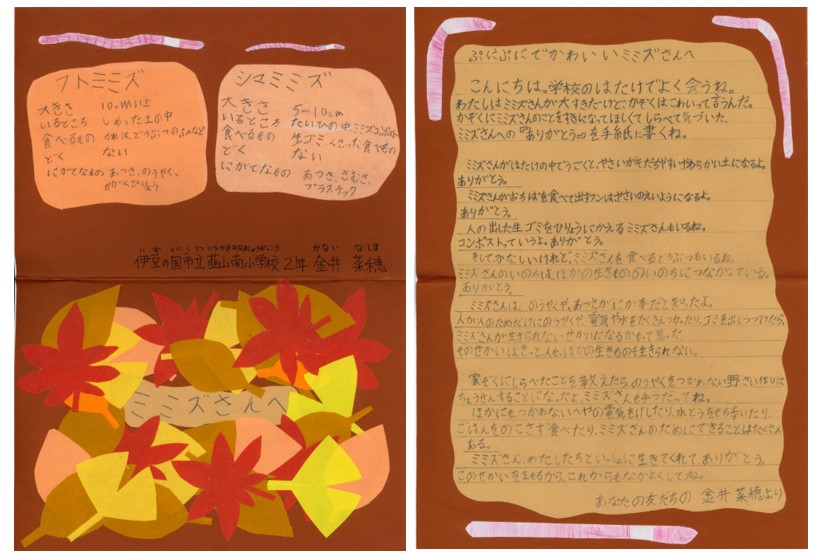 フトミミズ
大きさ 10cm以上
いるところ しめった土の中
食べるもの
どく ない
にがてなもの あつさ、のうやく、
かがくひりょう
シマミミズ
大きさ 5〜10cm
いるところ たいひの中
食べるもの 生ゴミ、くさった食べもの
どく ない
にがてなもの あつさ、さむさ、
プラスチック
かない なほ
伊豆の国市立韮山南小学校 2年 金井 菜穂
ミミズさんへ
ぷにぷにでかわいいミミズさんへ
こんにちは。学校のはたけでよく会うね。
わたしはミミズさんが大すきだけど、かぞくはこわいって言うんだ。
かぞくにミミズさんのことをすきになってほしくてしらべて気づいた、
ミミズさんへの『ありがとう』を手紙に書くね。
ミミズさんがはたけの中でうごくと、やさいがそだちやすいやわらかい土になるよ。
ありがとう。
ミミズさんがおちばを食べて出すフンはやさいのえいようになるよ。
ありがとう。
人の出した生ゴミをひりょうにかえるミミズさんもいるね。
コンポストっていうよ。ありがとう。
そして、かなしいけれど、ミミズさんを食べるどうぶつもいるね。
ミミズさんのいのちは、ほかの生きもののいのちにつながっている。
ありがとう。
ミミズさんは、のうやくや、あつさがにが手だと知ったよ。
人が人のためだけにのうやくや、電気や水をたくさんつかったり、ゴミを出しつづけたら、
ミミズさんが生きられないせかいになるかもって思った。
そのせかいはきっと、人もほかの生きものも生きられない。
家ぞくにしらべたことを教えたら、のうやくをつかわない野さい作りに
ちょうせんすることになったよ。ミミズさんも手つだってね。
ほかにもつかわないへやの電気をけしたり、水どうをもち歩いたり、
ごはんをのこさず食べたり、ミミズさんのためにできることはたくさん
ある。
ミミズさん、わたしたちといっしょに生きてくれて、ありがとう。
このせかいをまもるから、これからもなかよくしてね。
あなたの友だちの 金井 菜穂より